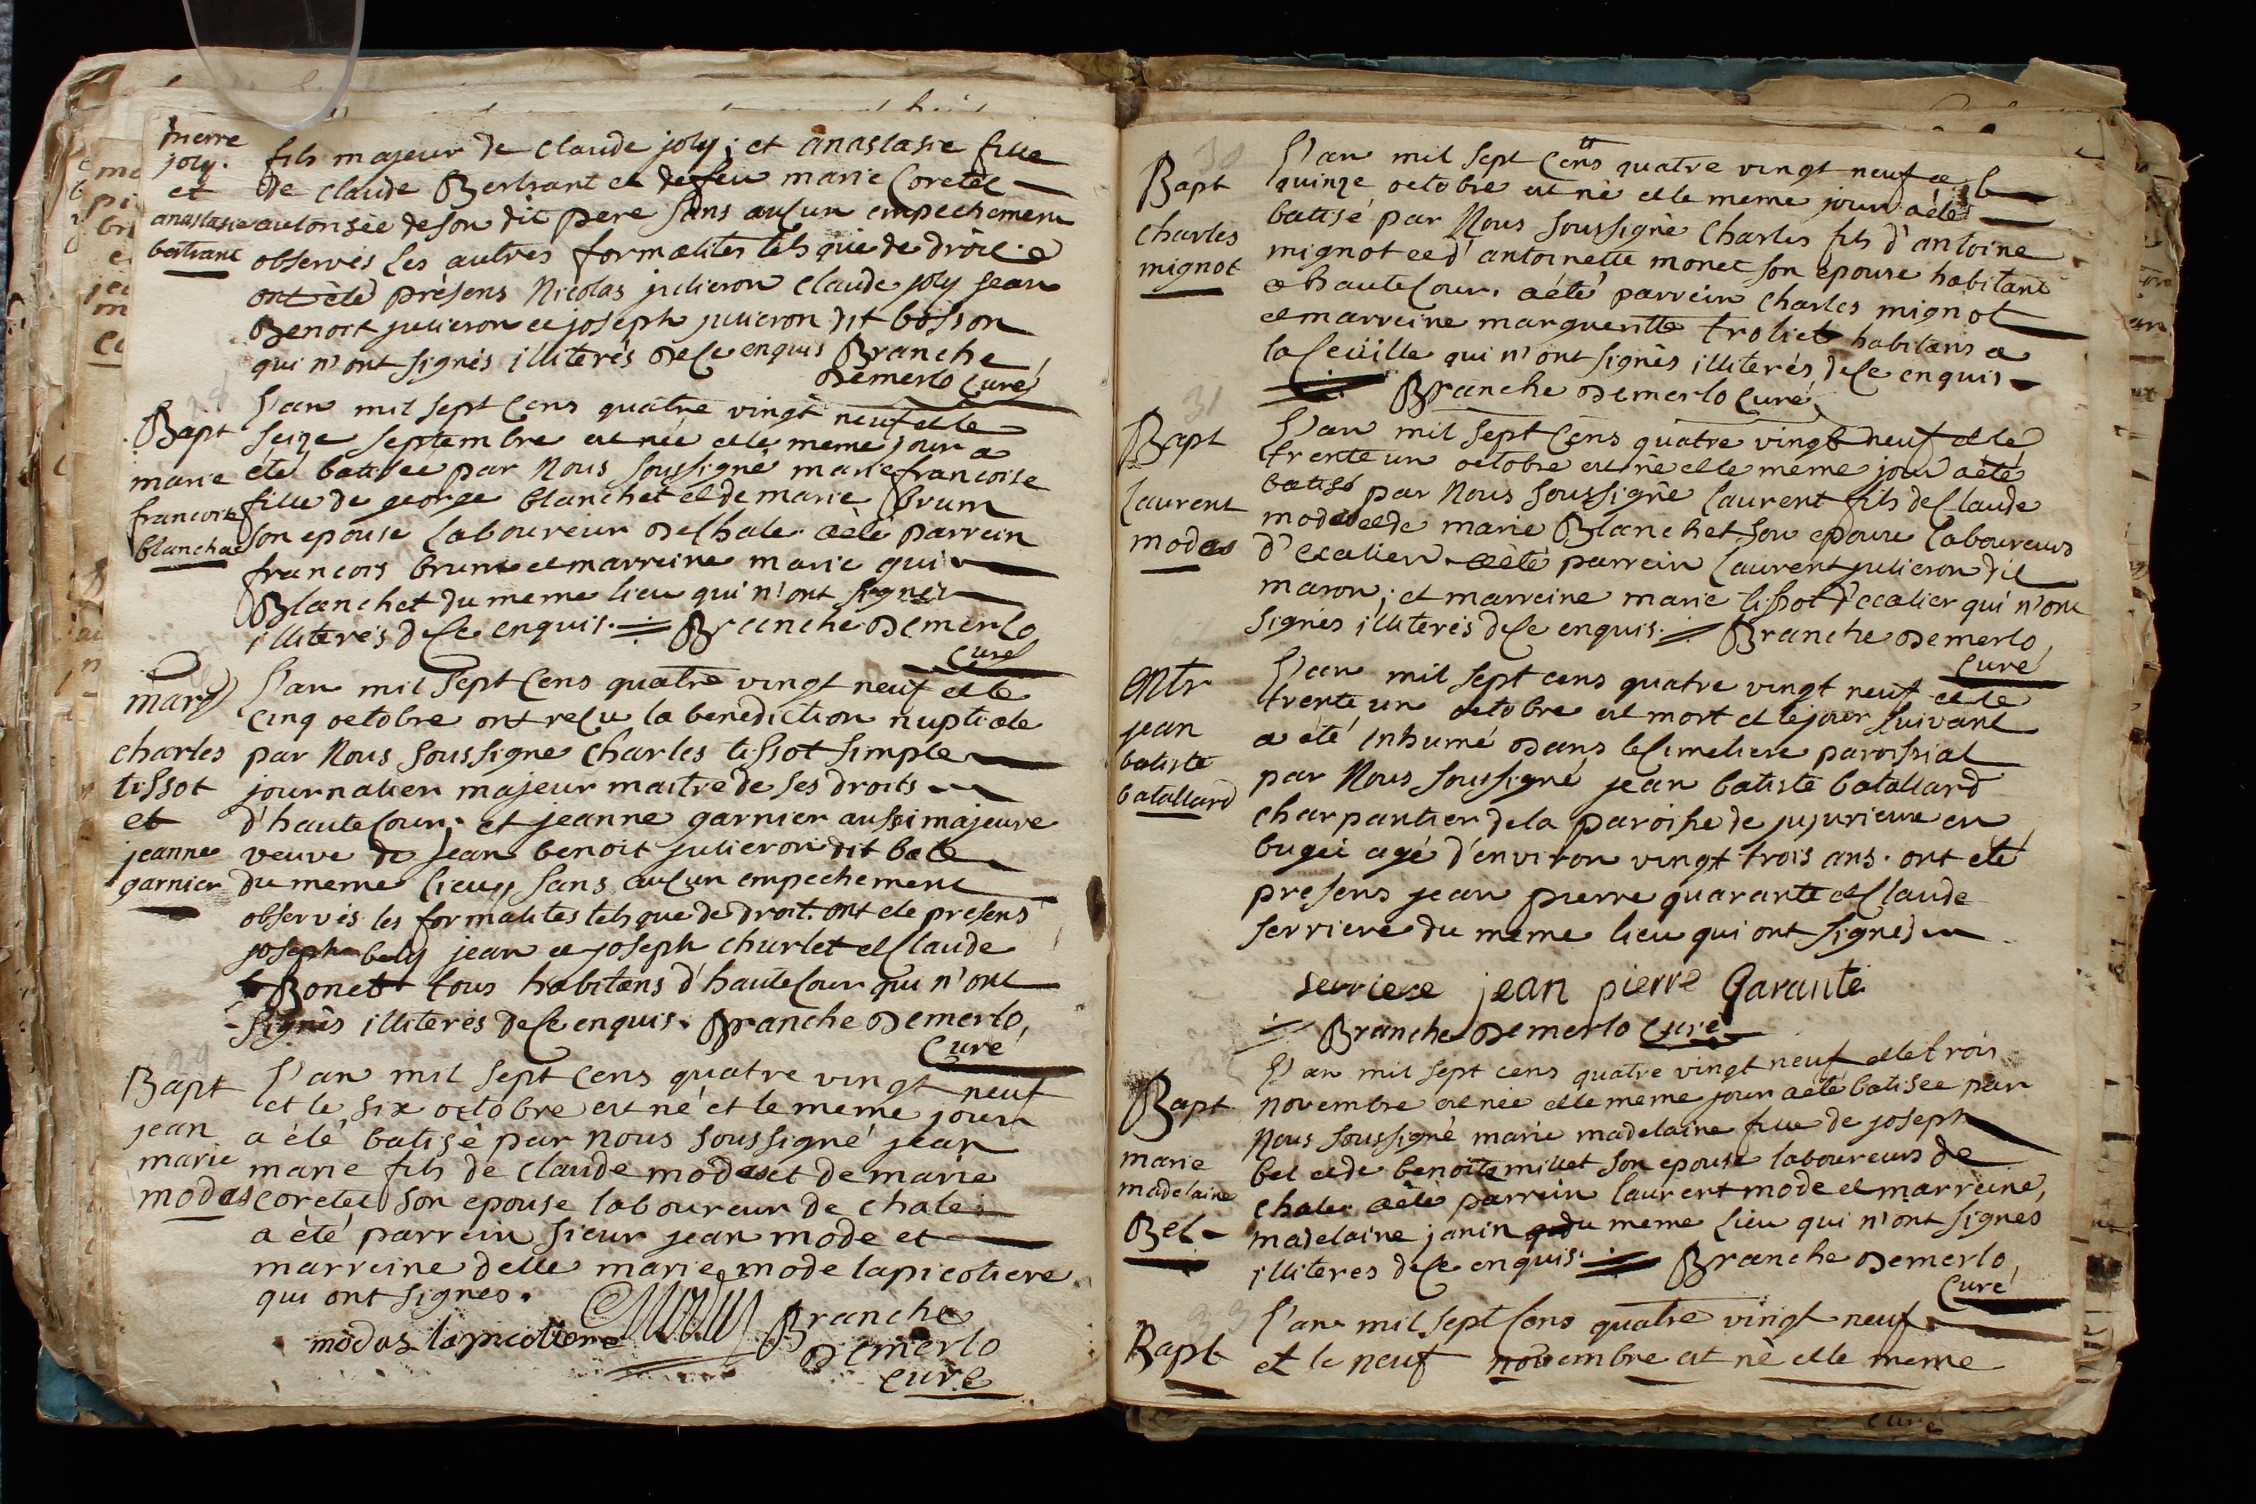 pierre
joly.
et
anastasie
bertrant
fils majeur de claude joly; et anastasie fille
de claude Bertrant et de feu marie Coretet
autorisée de son dit pere sans aucun empechement
observés les autres formalites tels que de droit
ont été présens Nicolas julieron claude joly jean
Benoit julieron et joseph julieron dit bosson
qui n'ont signés illiterés de ce enquis Branche
Demerlo Curé
Bapt
marie
francoise
blanchet
L'an mil sept Cens quatre vingt neuf et le
seize septembre est née et le meme jour a
été batisée par Nous soussigné marie francoise
fille de george blanchet et de marie brum
son epouse laboureur de Chale. a été parrein
francois brum et marreine marie qui
Blanchet du meme lieu qui n'ont signés
illiterés de ce enquis. Branche Demerlo
Curé
marg
charles
tissot
et
jeanne
garnier
L'an mil sept Cens quatre vingt neuf et le
Cinq octobre ont reçu la benediction nuptiale
par Nous soussigné Charles tissot simple
journalier majeur maitre de ses droits
d'hautecour. et jeanne garnier aussi majeure
veuve de jean benoit julieron dit bale
du meme lieu, sans aucun empechement
observés les formalites tels que de droit. ont ete presens
joseph bely jean et joseph churlet et Claude
Bonet tous habitans d'hautecour qui n'ont
signés illiterés de ce enquis. Branche Demerlo,
Curé
29
Bapt
jean
marie
modas
L'an mil sept Cens quatre vingt neuf
et le six octobre est né et le meme jour
a été batisé par nous soussigné jean
marie fils de Claude modas et de marie
coretet son epouse laboureur de Chale
a été parrein sieur jean mode et
marreine delle marie mode lapicotiere
qui ont signés.
modas lapicotiere Branche
Demerlo
curé
30
Bapt
charles
mignot
L'an mil sept Cens quatre vingt neuf et le
quinze octobre est né et le meme jour a été
batisé par Nous soussigné Charles fils d'antoine
mignot et d'antoinette monet son epouse habitant
a hautecour. a été parrein Charles mignot
et marreine margueritte troliet habitans a
la Ceüille qui n'ont signés illiterés de ce enquis
Branche Demerlo Curé
31
Bapt
laurent
modas
L'an mil sept Cens quatre vingt neuf et le
trente un octobre est né et le meme jour a été
batisé par Nous soussigné laurent fils de Claude
modas et de marie Blanchet son epouse laboureurs
d'. a été parrein laurent julieron dit
maron; et marreine marie tissot qui n'ont
signés illiterés de ce enquis. Branche Demerlo
Curé
entr
jean
batiste
batallard
L'an mil sept cens quatre vingt neuf et le
trente un octobre est mort et le jour suivant
a été inhumé dans le cimetiere paroissial
par Nous soussigné jean batiste batallard
charpantier de la paroisse de jujurieux en
bugei agé d'environ vingt trois ans. ont été
presens jean pierre quarante et Claude
serriere du meme lieu qui ont signés
serriere jean pierre Garante
Branche Demerlo curé
Bapt
marie
madelaine
Bel
L'an mil sept cens quatre vingt neuf et le trois
novembre est née et le meme jour a été batisée par
Nous soussigné marie madelaine fille de joseph
bel et de benoite millet son epouse laboureurs de
Chale. a été parrein laurent mode et marreine,
madelaine janin du meme lieu qui n'ont signés
illiteres de ce enquis. Branche Demerlo,
Curé
33
Bapt
L'an mil sept Cens quatre vingt neuf
et le neuf novembre est né et le meme
curé